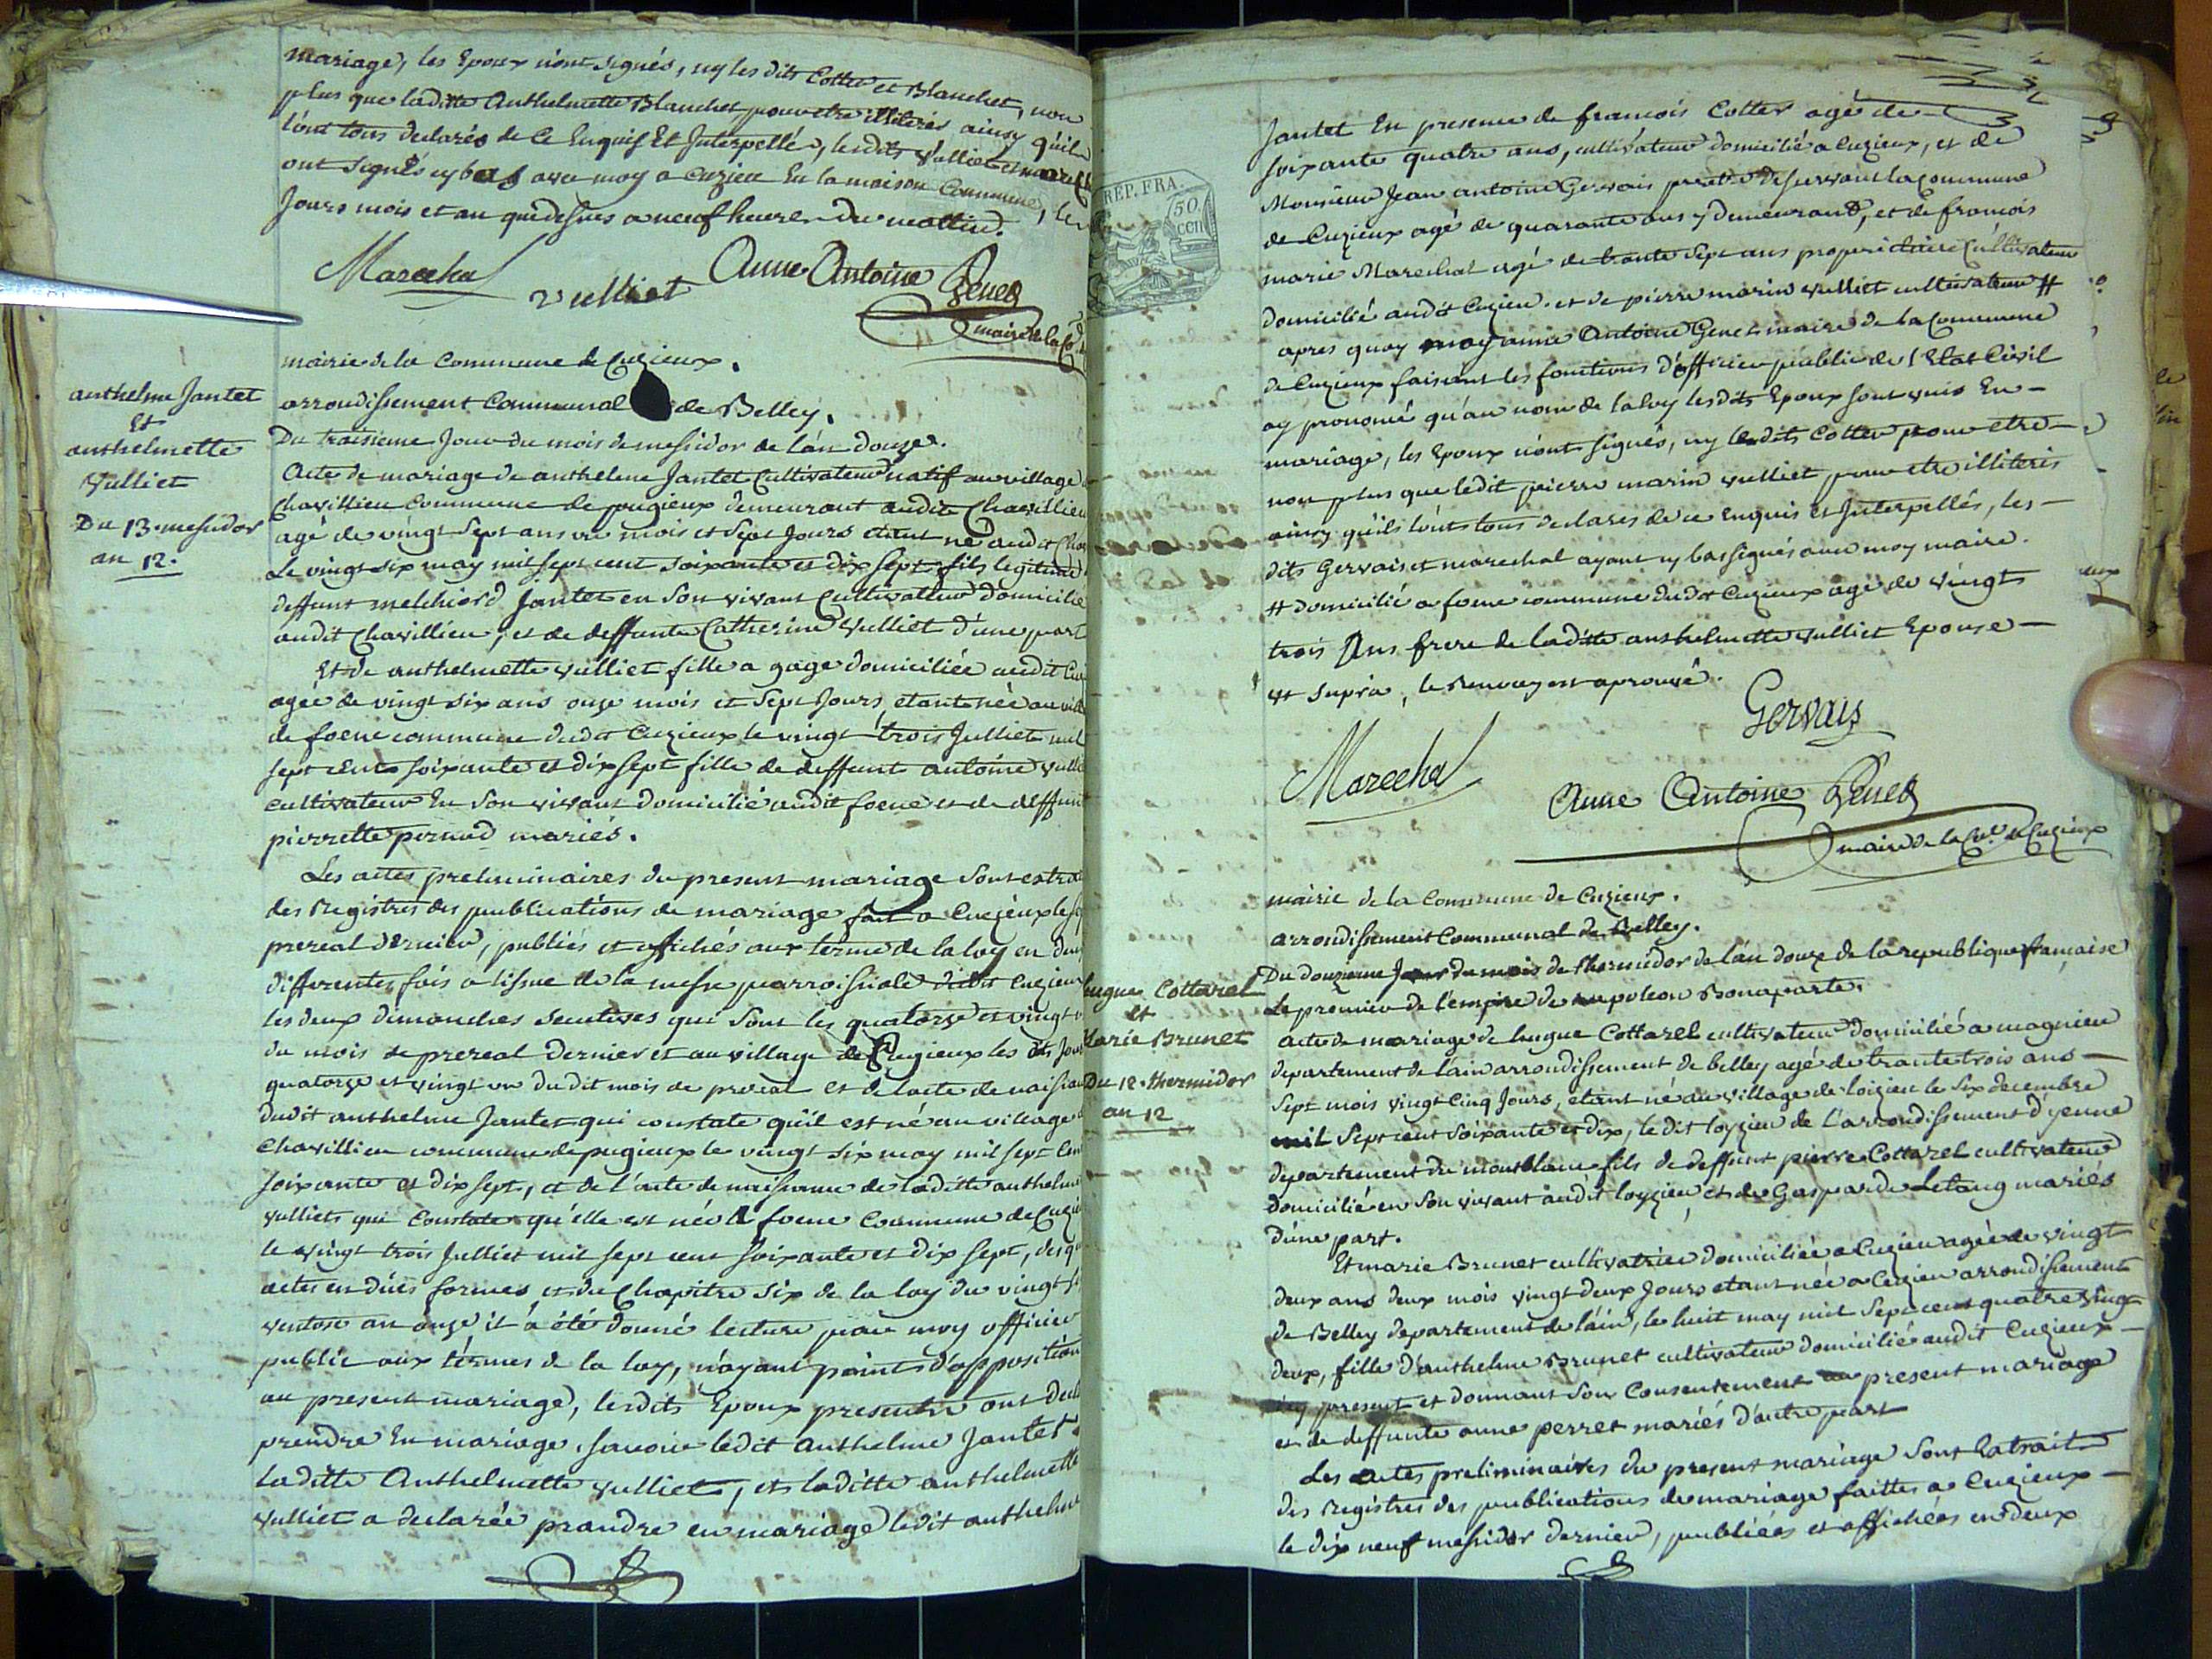 mariage, les Epoux n'ont signés, ny les dits Cotter et Blanchet, non
plus que laditte Anthelmette Blanchet, pour etre illiterés ainsy qu'ils
l'ont tous declarés de Ce Enquis Et Interpellés, lesdits Vulliet et marech
ont signés cy bas avec moy a Cuzieu En la maison Commune, les
Jours mois et an que dessus a neuf heures du mattin.
Marechal Vulliet Anne Antoine Genet
maire de la Co
anthelme Jantet
Et
anthelmette
Vulliet
Du 13. messidor
an 12.
mairie de la Commune de Cuzieux.
arrondissement Communal de Belley.
Du traisieme Jour du mois de messidor de l'an douze.
Acte de mariage de anthelme Jantet Cultivateur natif au village
Chavillieu Commune de pugieux demeurant audit Chavillieu
agé de vingt sept ans un mois et sept Jours etant né audit Cha
Le vingt six may mil sept cent soixante et dix sept fils legitime
deffunt melchiord Jantet en son vivant Cultivateur domicilié
audit Chavillieu, et de deffunte Catherine Vulliet d'une part
Et de anthelmette Vulliet fille a gage domiciliée audit Cu
agée de vingt six ans onze mois et sept Jours, etant née au vil
de foene commune dudit Cuzieux le vingt trois Julliet mil
sept cent soixante et dix sept fille de deffunt antoine vulli
cultivateur En son vivant domicilié audit foene et de deffun
pierrette pernod mariés.
Les actes preliminaires du present mariage sont extrai
des Registres des publications de mariage fait a Cuzieux le
prereal dernier, publiés et affichés aux terme de la loy en deux
differentes fois a lissue de la messe parroissiale dudit Cuzieux
les deux dimanches secutives qui sont les quatorze et vingt u
du mois de prereal dernier et au village de Pugieux les dits Jour
quatorze et vingt un du dit mois de prereal et de lacte de naissan
dudit anthelme Jantet qui constate qu'il est né au village
Chavillieu commune de pugieux le vingt six may mil sept Cen
soixante et dix sept, et de l'acte de naissance de laditte anthelme
vulliet qui Constate qu'elle est née a foene Commune de Cuzi
le vingt trois Julliet mil sept cent soixante et dix sept, desqu
actes en dües formes et du Chapitre six de la loy du vingt
ventose an onze il a été donné lecture par moy officier
public aux térmes de la loy, n'ayant point d'opposition
au present mariage, lesdits Epoux presents ont decla
prendre En mariage, savoir ledit Anthelme Jantet
Laditte Anthelmette Vulliet, et laditte anthelmette
Vulliet a declarée prandre en mariage ledit anthelme
REP. FRA.
50
CEN
Jantet En presence de francois Cotter agé de
soixante quatre ans, cultivateur domicilié a Cuzieux, et de
Monsieur Jean antoine Gervais pretre desservant la Commune
de Cuzieux agé de quarante ans y demeurant, et de francois
marie Marechal agé de trante sept ans proprietaire Cultivateur
domicilié audit Cuzieu. et de pierre marin Vulliet cultivateur #
apres quoy moy anne Antoine Genet maire de la Commune
de Cuzieux faisant les fonctions d'officier public de l'Etat Civil
ay prononcé qu'au nom de la loy lesdits Epoux sont unis En
mariage, les Epoux n'ont signés, ny ledits Cotter pour etre
non plus que ledit pierre marin vulliet pour etre illiteris
ainsy qu'ils l'ont tous declarés de ce Enquis et Interpellés, les
dits Gervais et marechal ayant cy bas signés avec moy maire.
# domicilié a foene commune dudit Cuzieux agé de vingt
trois Ans frere de laditte anthelmette Vulliet Epouse
ut supra, le Renvoy est aprouvé.
Gervais
Marechal Anne Antoine Genet
maire de la Cne de Cuzieux
hugue Cottarel
et
Marie Brunet
Du 12. thermidor
an 12
mairie de la Commune de Cuzieux.
arrondissement Communal de Belley.
Du douzieme Jour du mois de thermidor de l'an douze de la republique française
Le premier de l'empire de napoleon Bonaparte.
acte de mariage de hugue Cottarel cultivateur domicilié a magnieu
departement de l'ain arrondissement de belley agé de trante trois ans
sept mois vingt Cinq Jours, etant né au village de loizieu le six decembre
mil sept cent soixante et dix, le dit loyzieu de l'arrondissement d'yenne
departement du montblanc fils de deffunt pierre Cottarel cultivateur
domicilié en son vivant audit loyzieu, et de Gasparde Letang mariés
d'une part.
Et marie Brunet cultivatrice domiciliée a Cuzieu agée de vingt
deux ans deux mois vingt deux Jours etant née a Cuzieu arrondissement
de Belley departement de l'ain, le huit may mil sept cent quatre vingt
deux, fille d'anthelme Brunet cultivateur domicilié audit Cuzieux
icy present et donnant son Consentement au present mariage
et de deffunte anne perret mariés d'autre part
Les actes preliminaires du present mariage sont Extraits
des Registres des publications de mariage faittes a Cuzieux
le dix neuf messidor dernier, publiées et affichées en deux